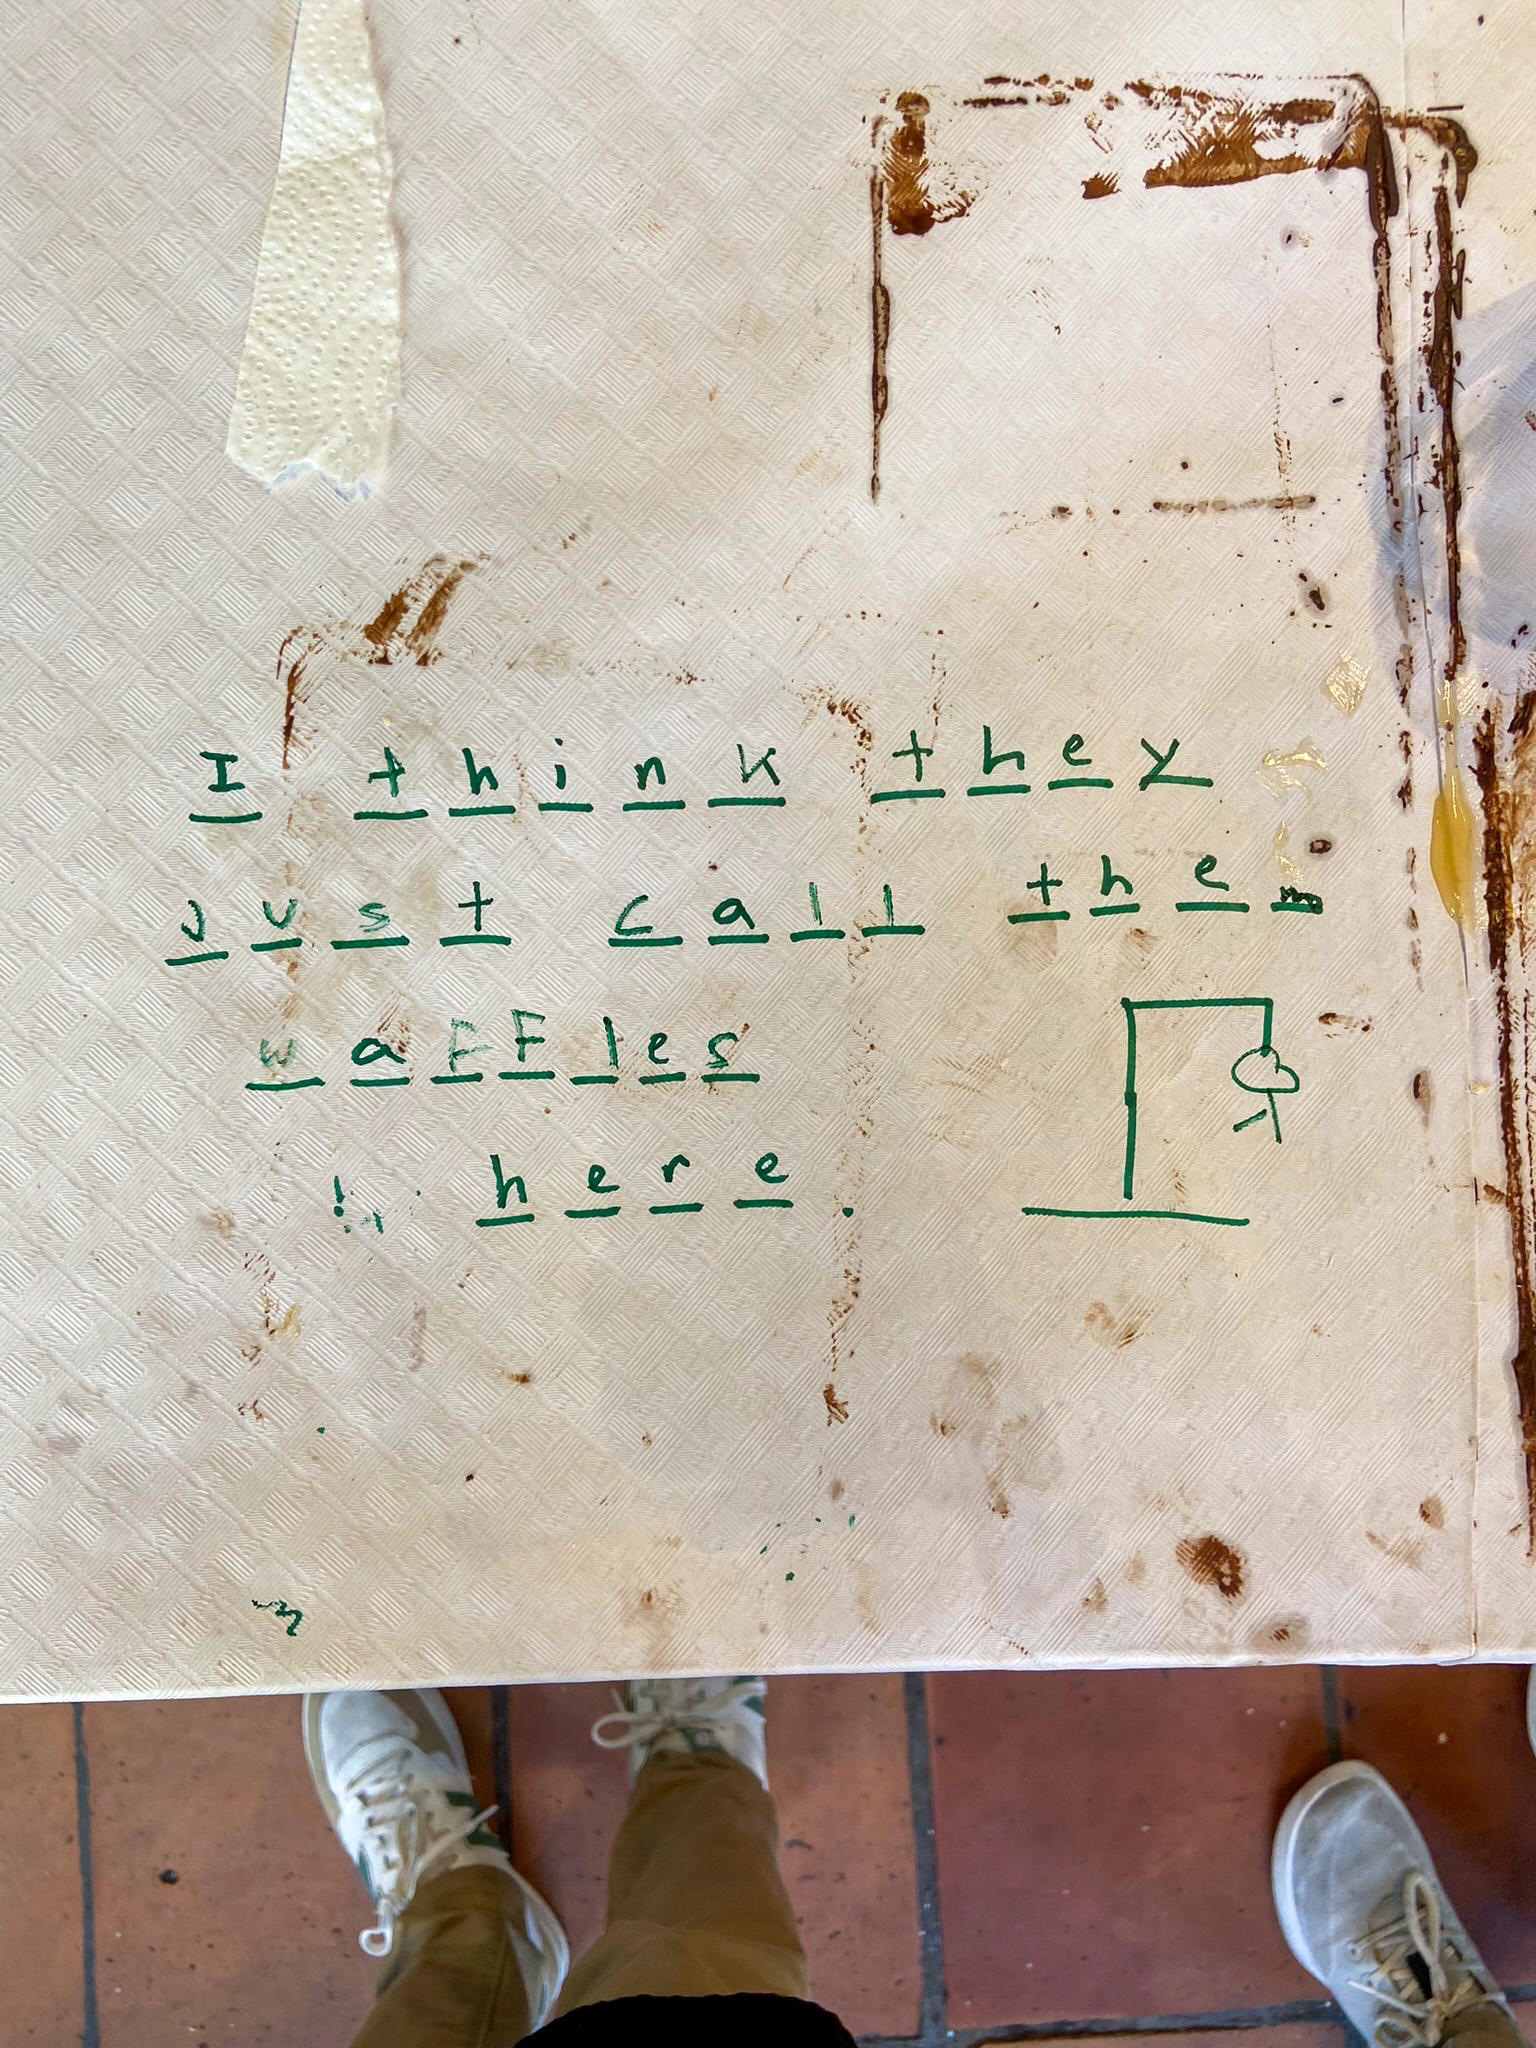 I think they
just call them
waffles
! here.